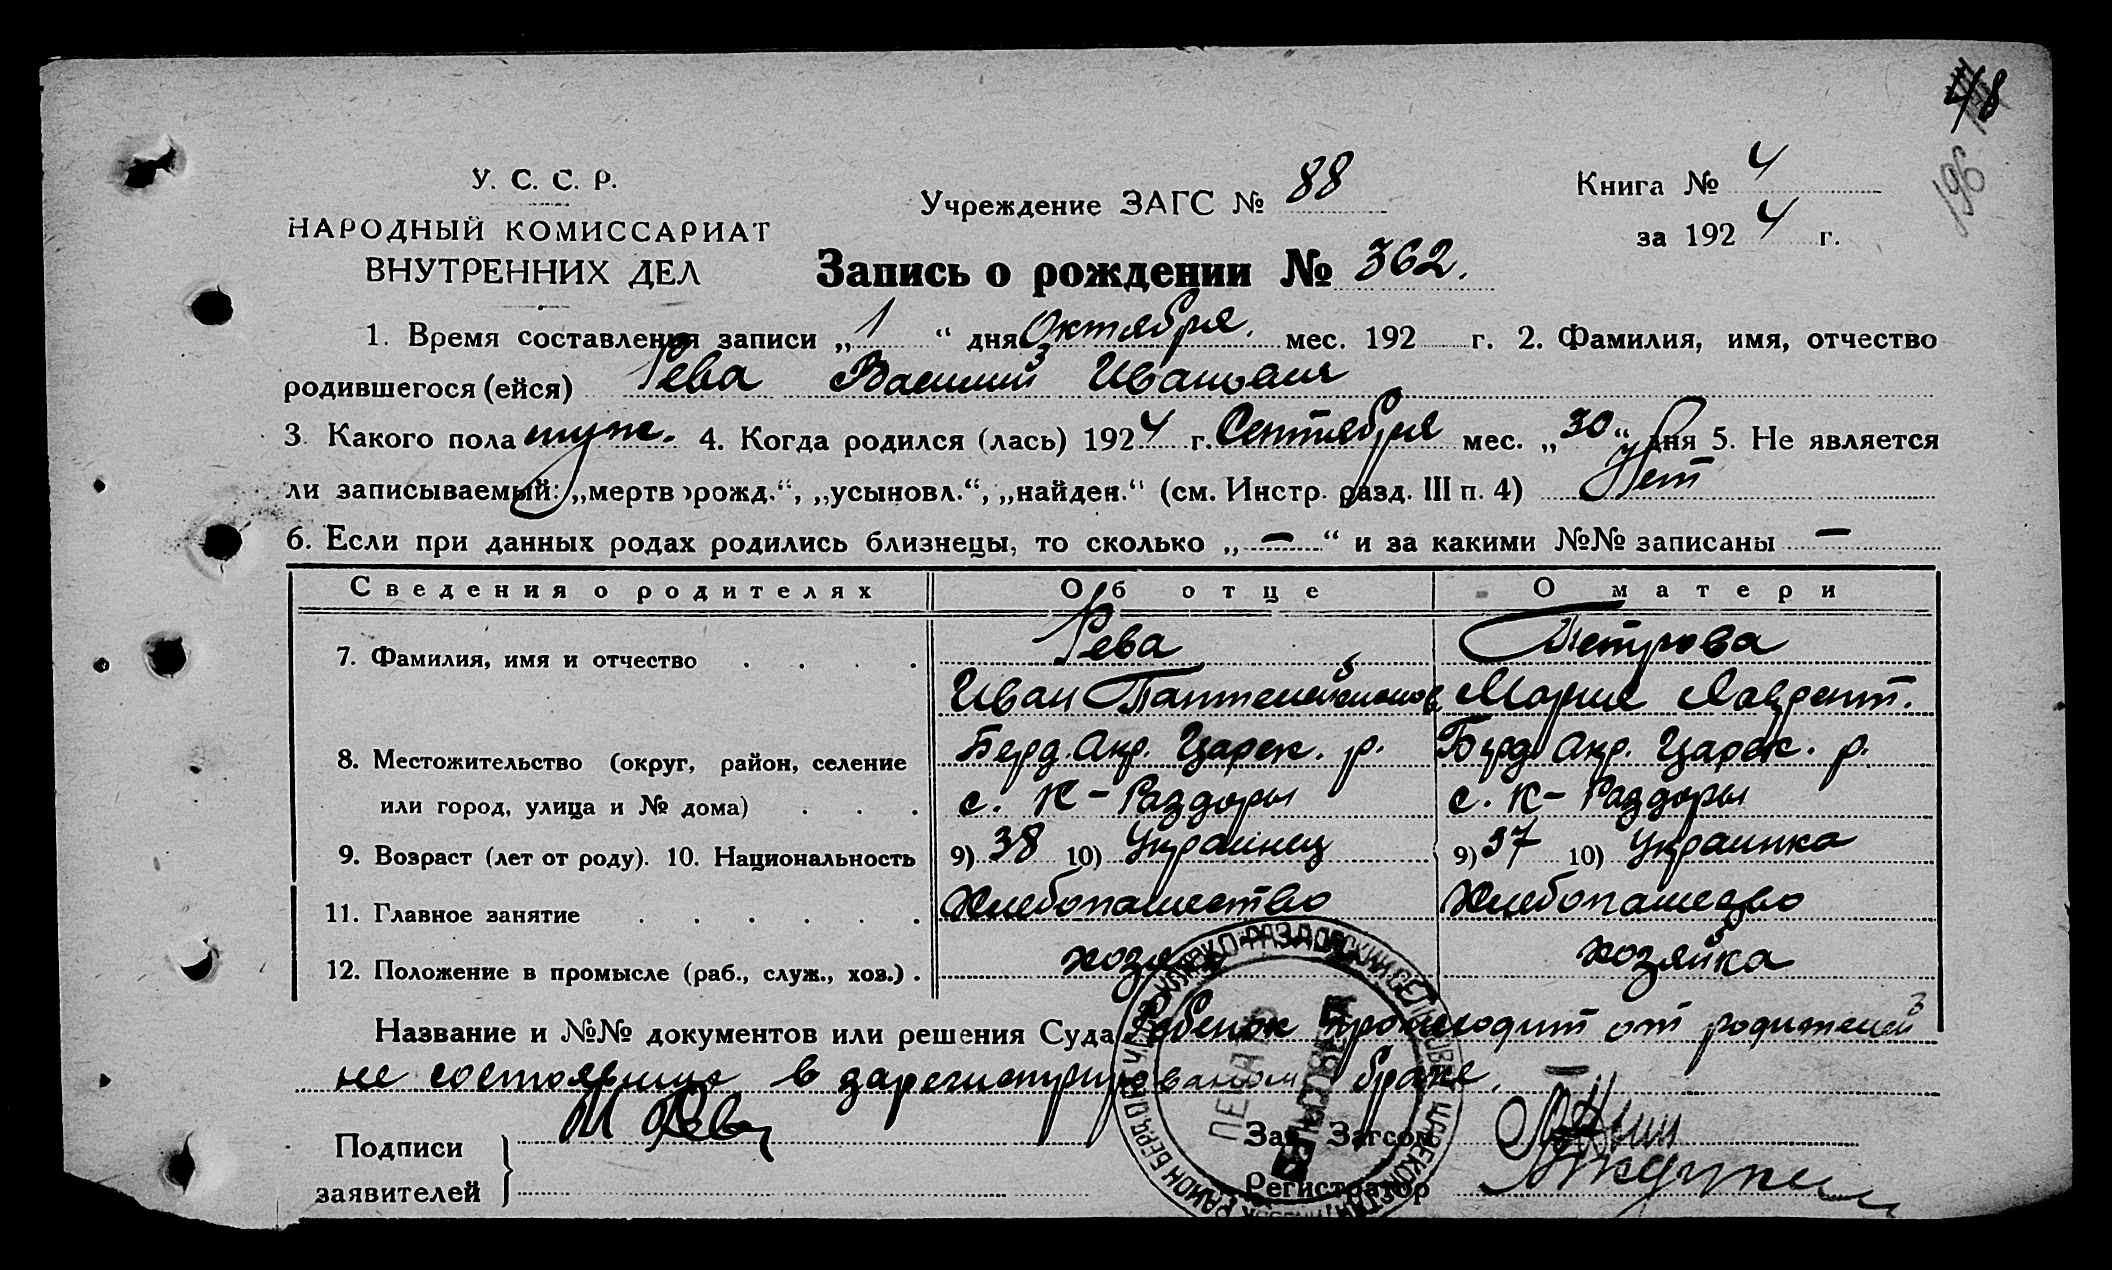 48
196
У. С. С. Р.
НАРОДНЫЙ КОМИССАРИАТ
ВНУТРЕННИХ ДЕЛ
Учреждение ЗАГС № 88
Книга № 4
за 1924 г.
Запись о рождении № 362.
1. Время составления записи „1“ дня Октября. мес. 192 г. 2. Фамилия, имя, отчество
родившегося (ейся) Рева Василий Иванович
3. Какого пола муж. 4. Когда родился (лась) 1924 г. Сентября мес. „30“ дня 5. Не является
ли записываемый: „мертворожд.“, „усыновл.“, „найден.“ (см. Инстр. разд. III п. 4) Нет
6. Если при данных родах родились близнецы, то сколько „—“ и за какими №№ записаны —
Сведения о родителях Об отце О матери
7. Фамилия, имя и отчество Рева Петрова
Иван Мария Лаврент.
8. Местожительство (округ, район, селение Берд. Окр. Царек. р. Берд. Окр. Царек. р.
или город, улица и № дома) с. К-Раздоры с. К-Раздоры
9. Возраст (лет от роду). 10. Национальность 9) 38 10) Украинец 9) 37 10) Украинка
11. Главное занятие Хлебопашество Хлебопашество
12. Положение в промысле (раб., служ., хоз.) хозяин хозяйка
Название и №№ документов или решения Суда Ребенок происходит от родителей
не состоявших в зарегистрированом браке.
Подписи
заявителей
И Рева
Зав. Загсом
Регистратор